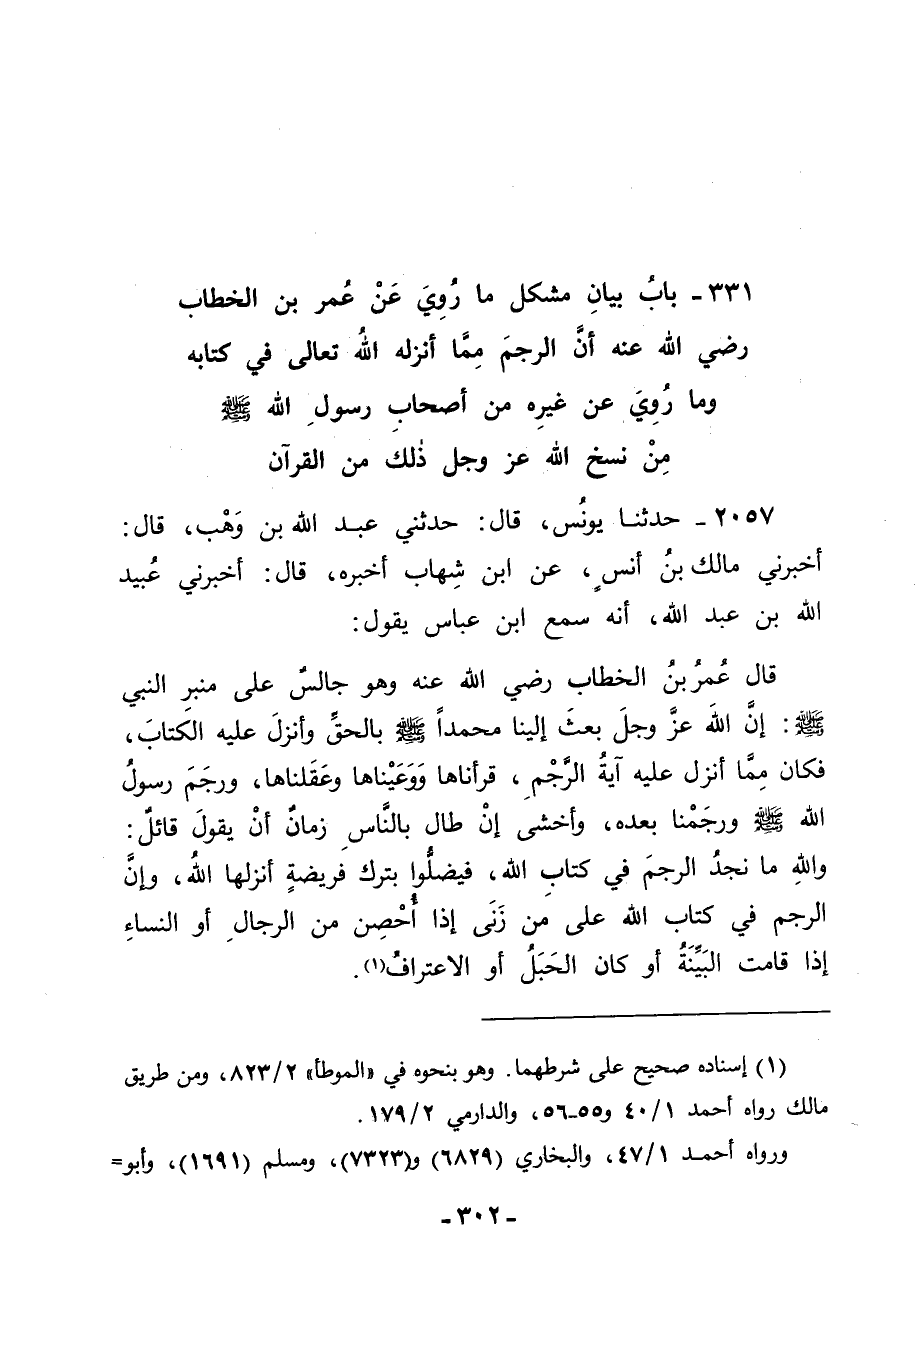 ٣٣١ - بابُ بيانِ مشكل ما رُوِيَ عَنْ عُمر بن الخطاب
رضي الله عنه أنَّ الرجمَ مِمَّا أنزله اللهُ تعالى في كتابه
وما رُوِيَ عن غيرِه من أصحابِ رسولِ الله ﷺ
مِنْ نسخ الله عز وجل ذٰلك من القرآن
٢٠٥٧ - حدثنا يونُس، قال: حدثني عبد الله بن وَهْب، قال:
أخبرني مالك بنُ أنسٍ، عن ابن شِهاب أخبره، قال: أخبرني عُبيد
الله بن عبد الله، أنه سمع ابن عباس يقول:
قال عُمرُ بنُ الخطاب رضي الله عنه وهو جالسٌ على منبرِ النبي
ﷺ: إنَّ اللهَ عزَّ وجلَ بعثَ إلينا محمداً ﷺ بالحقِّ وأنزلَ عليه الكتابَ،
فكان مِمَّا أنزل عليه آيةُ الرَّجْمِ، قرأناها وَوَعَيْناها وعَقَلناها، ورجَمَ رسولُ
الله ﷺ ورجَمْنا بعده، وأخشى إنْ طال بالنَّاسِ زمانٌ أنْ يقولَ قائلٌ:
واللهِ ما نجدُ الرجمَ في كتابِ الله، فيضلُّوا بترك فريضةٍ أنزلها اللهُ، وإنَّ
الرجم في كتاب الله على من زَنَى إذا أُحْصِن من الرجالِ أو النساءِ
إذا قامت البَيِّنَةُ أو كان الحَبَلُ أو الاعترافُ(١).
(١) إسناده صحيح على شرطهما. وهو بنحوه في «الموطأ» ٨٢٣/٢، ومن طريق
مالك رواه أحمد ٤٠/١ و٥٥-٥٦، والدارمي ١٧٩/٢.
ورواه أحمد ٤٧/١، والبخاري (٦٨٢٩) و(٧٣٢٣)، ومسلم (١٦٩١)، وأبو=
- ٣٠٢ -